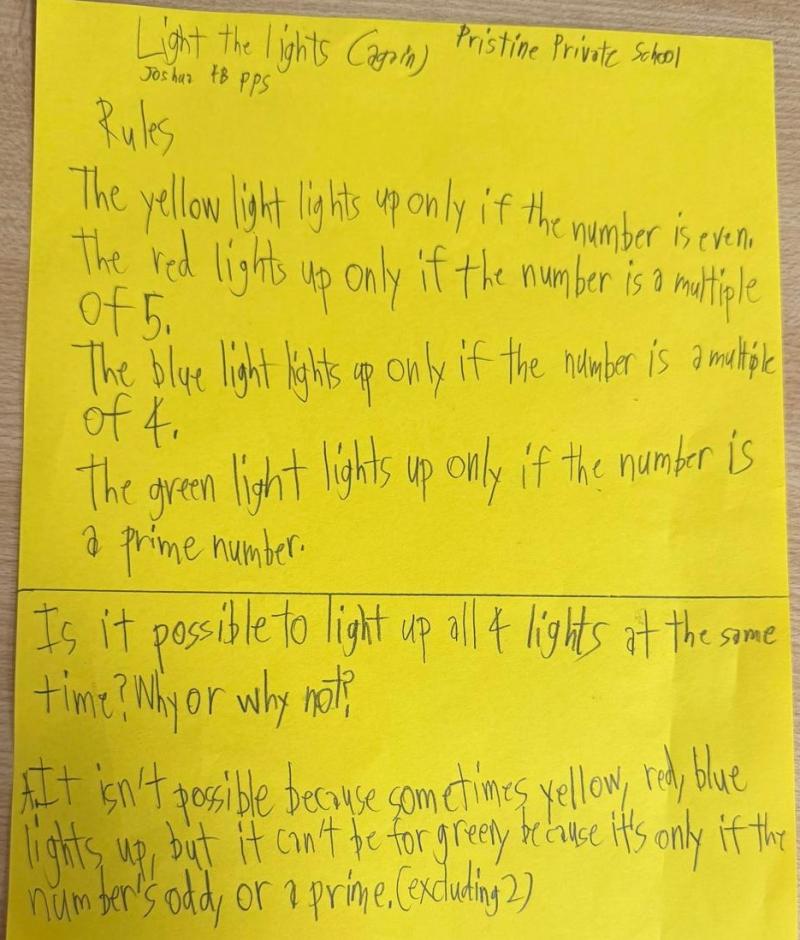 Light the lights (again) Pristine Private School
Joshua +B PPS
Rules
The yellow light lights up only if the number is even.
The red lights up only if the number is a multiple
of 5.
The blue light lights up only if the number is a multiple
of 4.
The green light lights up only if the number is
a prime number.
Is it possible to light up all 4 lights at the same
time? Why or why not?
A. It isn't possible because sometimes yellow, red, blue
lights up, but it can't be for green, because it's only if the
number's odd, or a prime. (excluding 2)